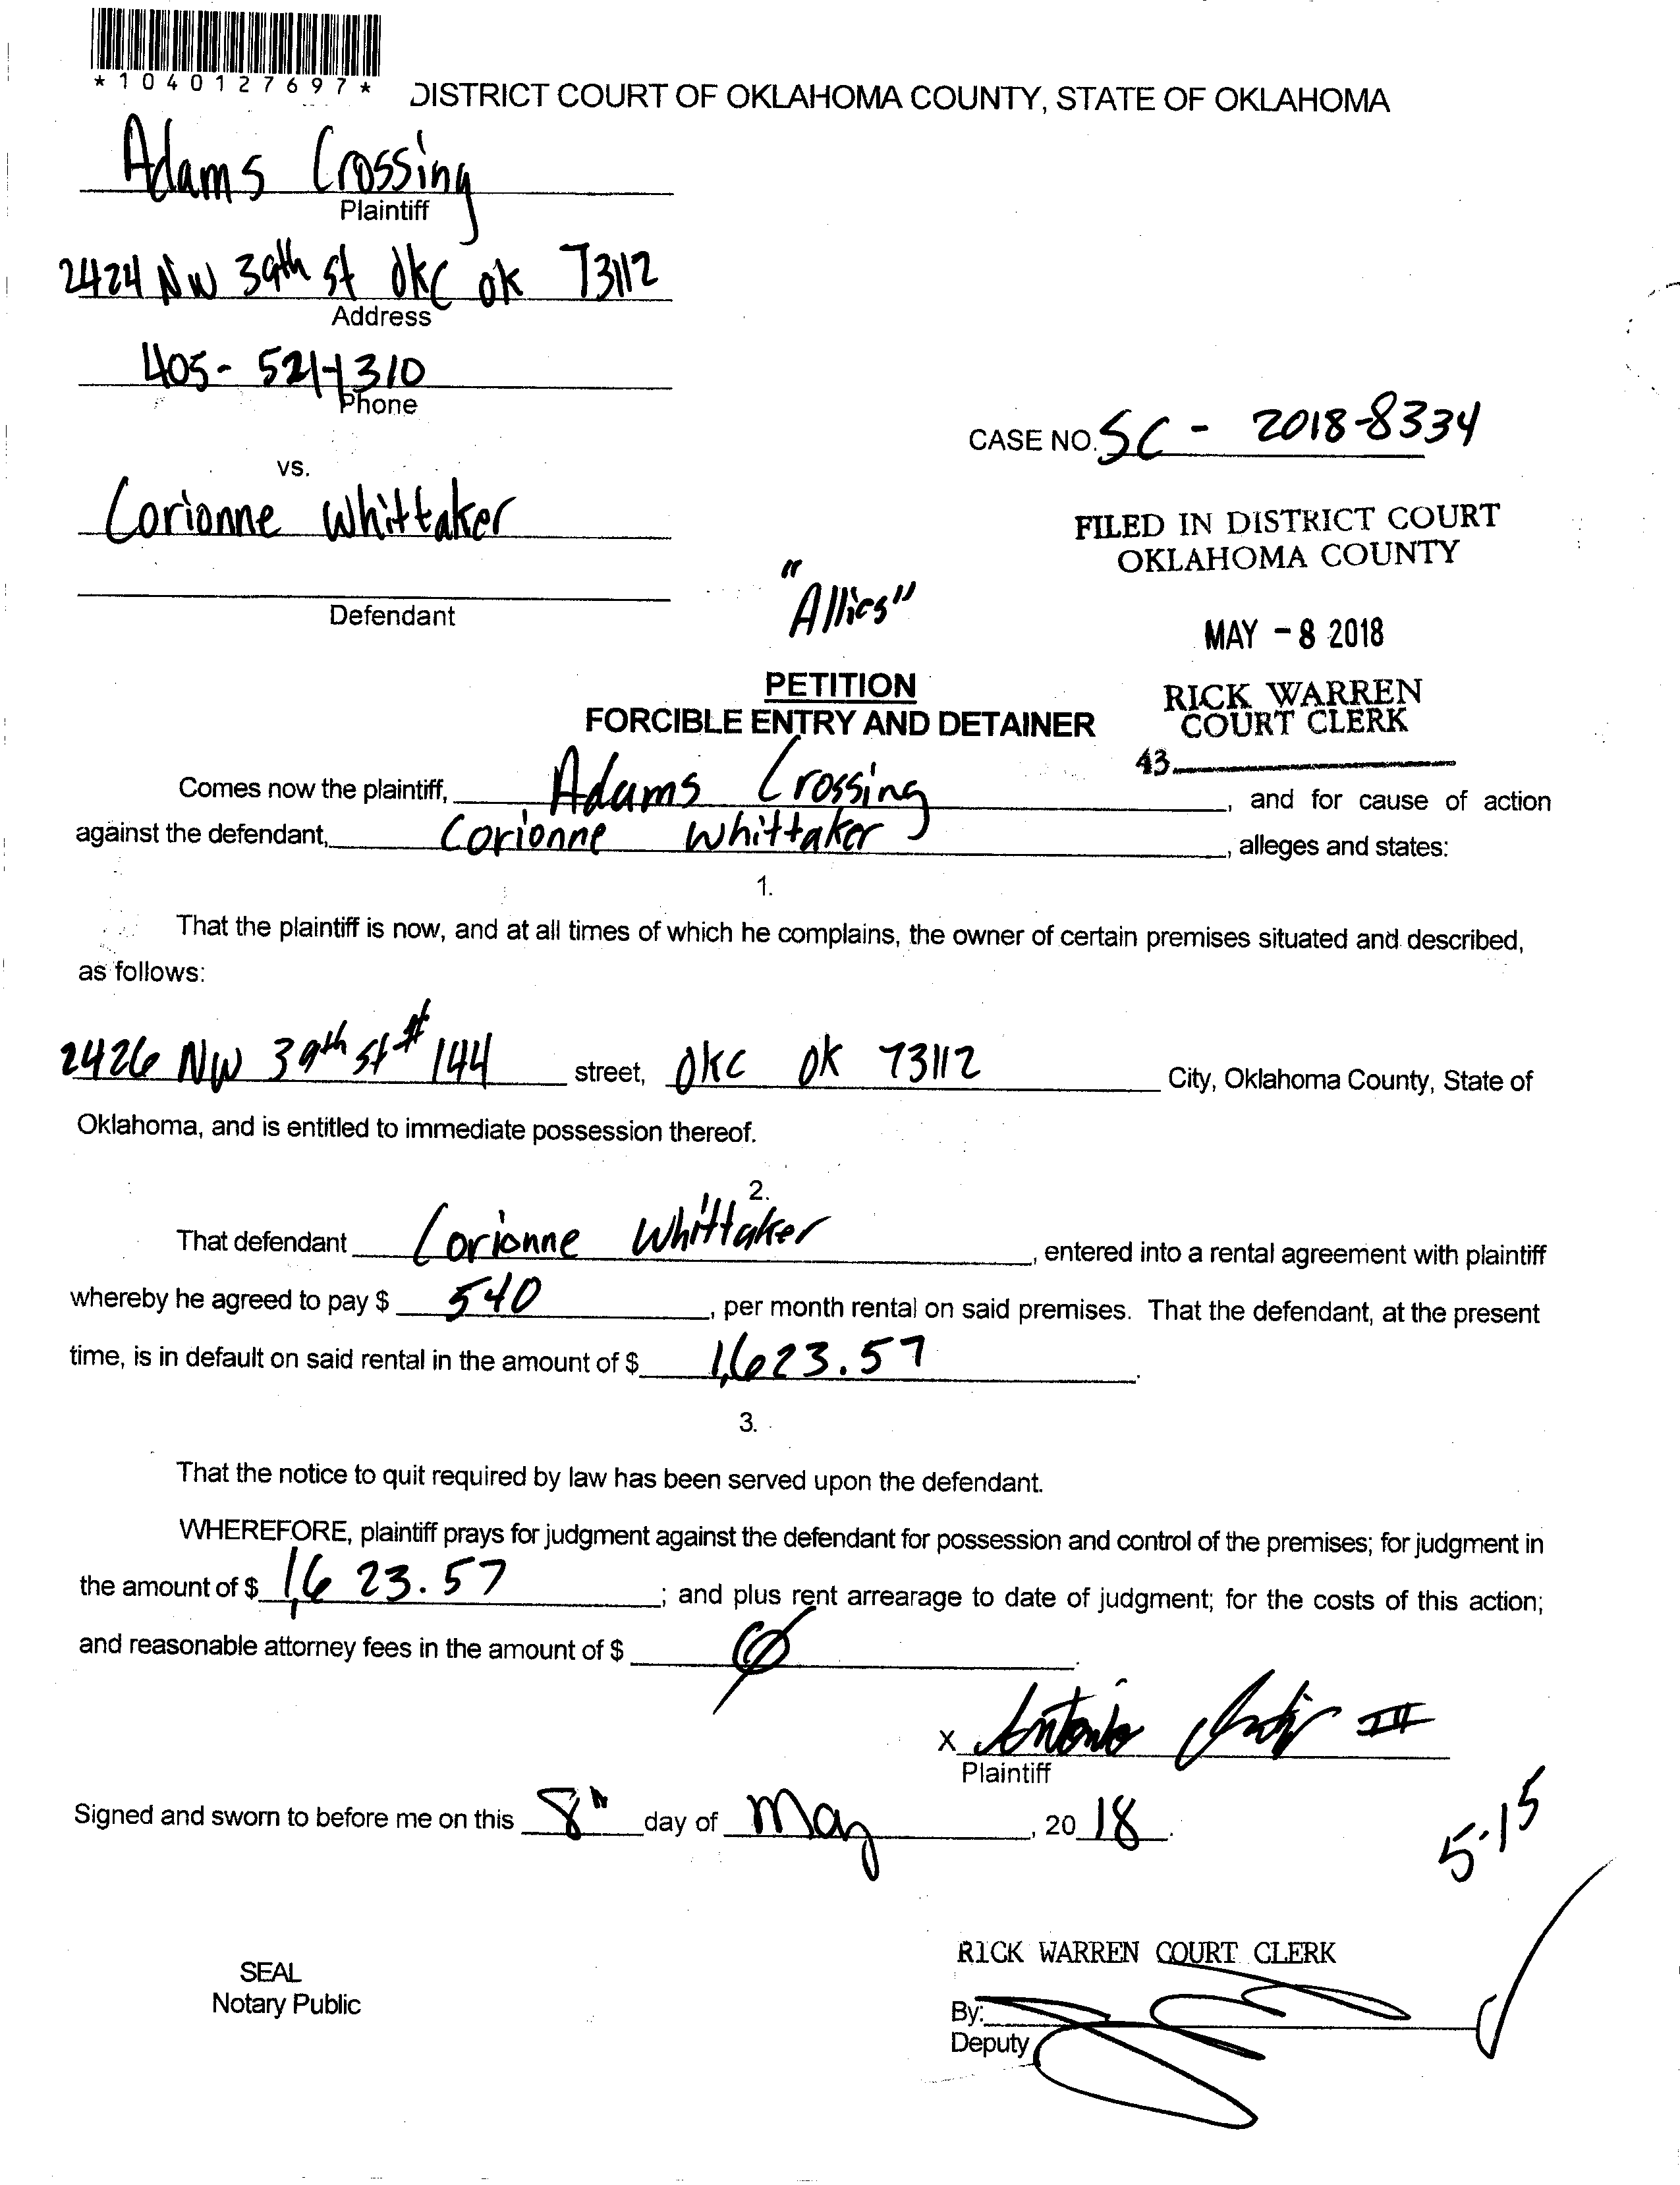 *1040127697*
DISTRICT COURT OF OKLAHOMA COUNTY, STATE OF OKLAHOMA
Adams Crossing
Plaintiff
2424 NW 39th st OKC OK 73112
Address
405-521-1310
Phone
CASE NO. SC - 2018-8334
vs.
Corionne Whittaker
FILED IN DISTRICT COURT
OKLAHOMA COUNTY
Defendant
"Allies"
MAY - 8 2018
PETITION
FORCIBLE ENTRY AND DETAINER
RICK WARREN
COURT CLERK
43
Comes now the plaintiff, Adams Crossing, and for cause of action
against the defendant, Corionne Whittaker, alleges and states:
1.
That the plaintiff is now, and at all times of which he complains, the owner of certain premises situated and described,
as follows:
2426 NW 39th st # 144 street, OKC OK 73112 City, Oklahoma County, State of
Oklahoma, and is entitled to immediate possession thereof.
2.
That defendant Corionne Whittaker, entered into a rental agreement with plaintiff
whereby he agreed to pay $ 540, per month rental on said premises. That the defendant, at the present
time, is in default on said rental in the amount of $ 1,623.57.
3.
That the notice to quit required by law has been served upon the defendant.
WHEREFORE, plaintiff prays for judgment against the defendant for possession and control of the premises; for judgment in
the amount of $ 1,623.57; and plus rent arrearage to date of judgment; for the costs of this action;
and reasonable attorney fees in the amount of $ Ø.
X Antonio III
Plaintiff
Signed and sworn to before me on this 8th day of May, 20 18.
5-15
RICK WARREN COURT CLERK
SEAL
Notary Public
By:
Deputy